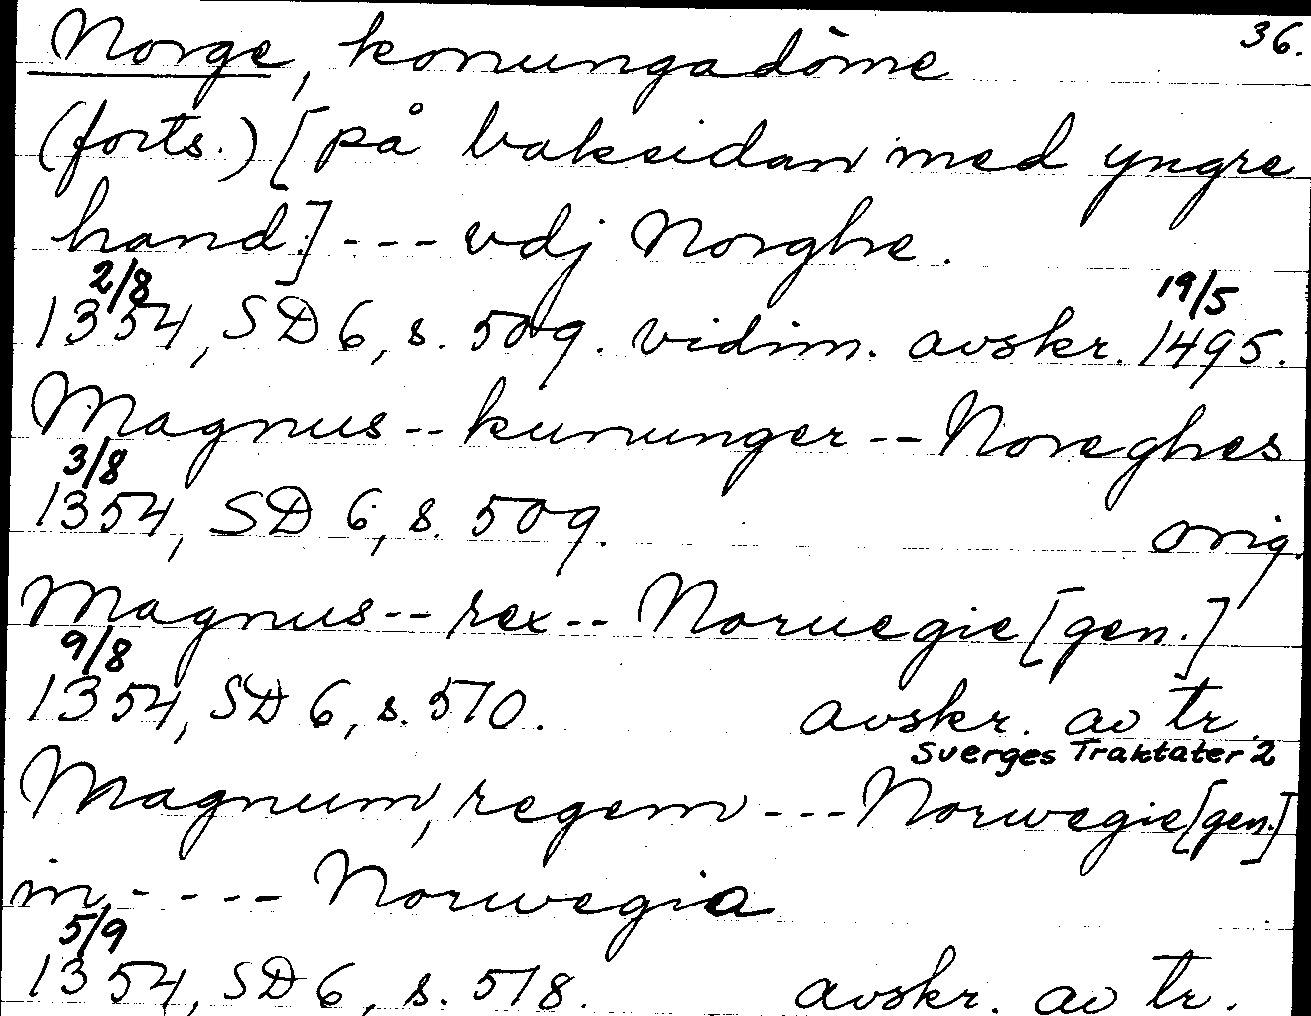 Norge, konungadöme 36.
(forts.) [på baksidan med yngre
hand] --- vdj Norghe.
2/8 19/5
1354, SD 6, s. 509. vidim. avskr. 1495.
Magnus -- kununger -- Noreghes
3/8
1354, SD 6, s. 509. orig.
Magnus -- rex -- Noruegie [gen.]
9/8
1354, SD 6, s. 510. avskr. av tr.
Sverges Traktater 2
Magnum, regem --- Norwegie [gen.]
in ---- Norwegia
5/9
1354, SD 6, s. 518. avskr. av tr.